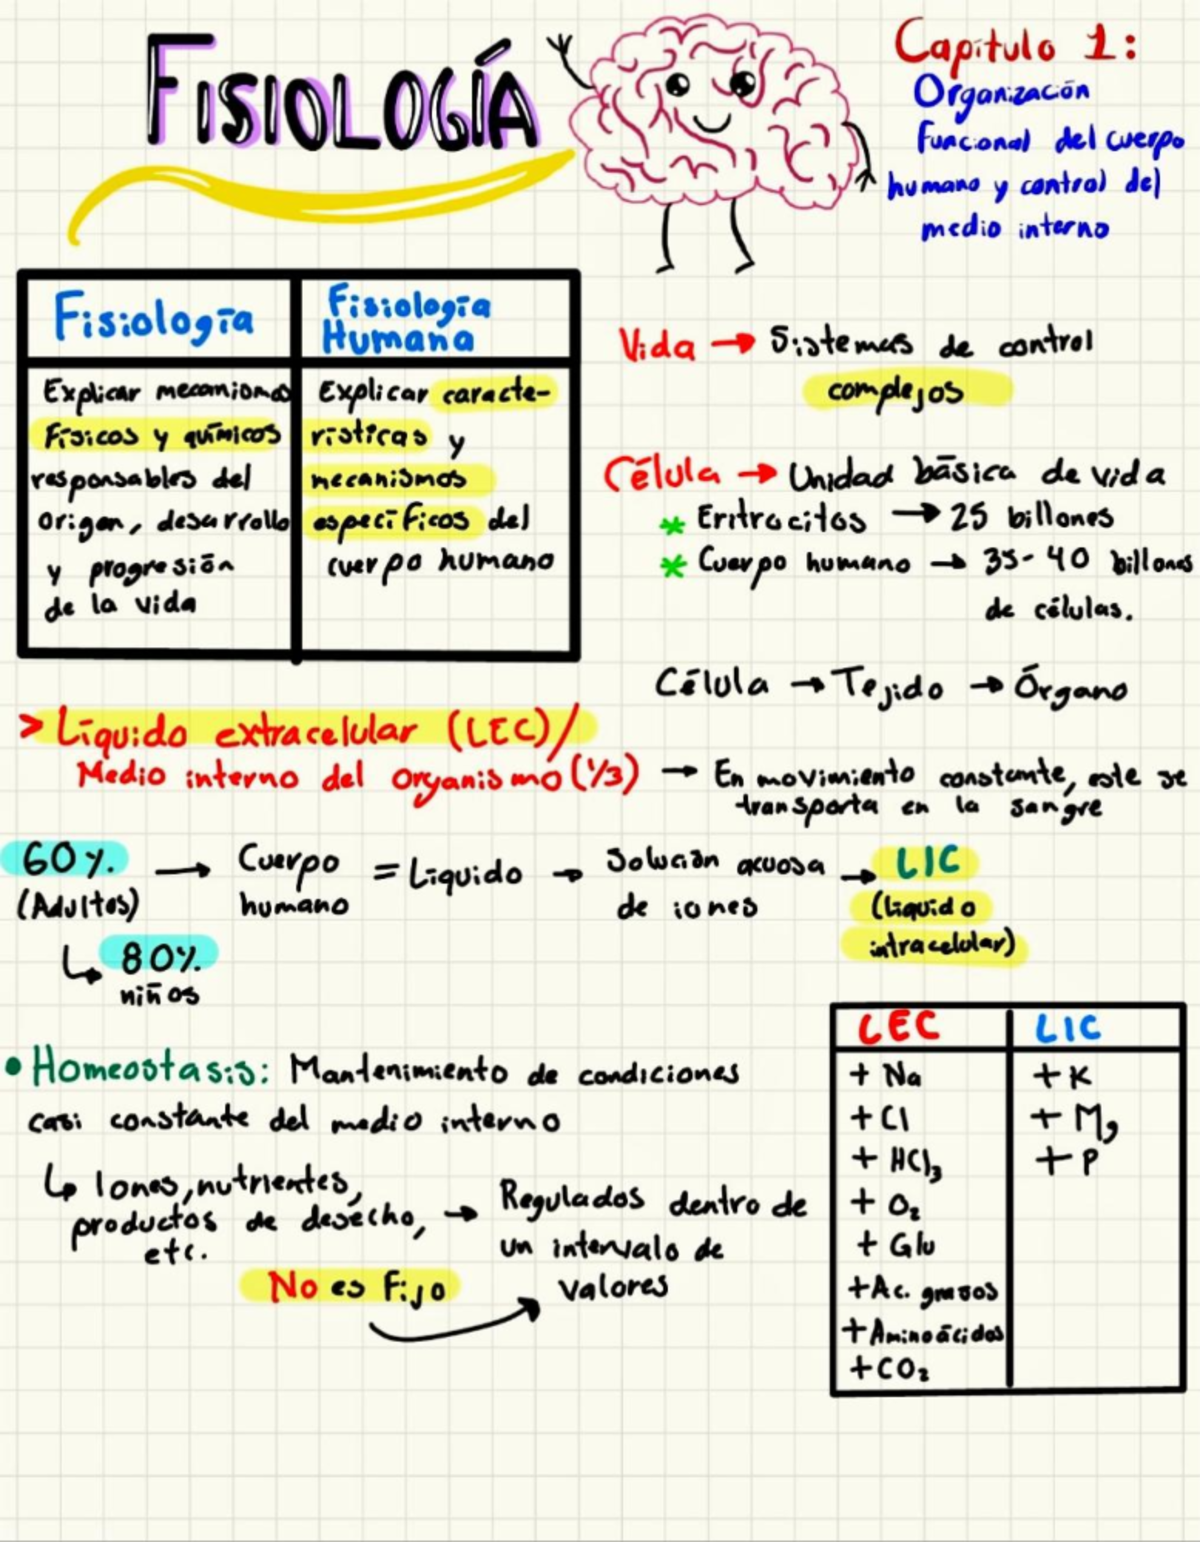 FISIOLOGÍA
Capítulo 1:
Organización
funcional del cuerpo
humano y control del
medio interno
Fisiología
Fisiología
Humana
Explicar mecanismos
Físicos y químicos
responsables del
origen, desarrollo
y progresión
de la vida
Explicar caracte-
rísticas y
mecanismos
específicos del
cuerpo humano
Vida → Sistemas de control
complejos
Célula → Unidad básica de vida
* Eritrocitos → 25 billones
* Cuerpo humano → 35-40 billones
de células.
Célula → Tejido → Órgano
> Líquido extracelular (LEC)/
Medio interno del organismo (1/3) → En movimiento constante, este se
transporta en la sangre
60% → Cuerpo = Líquido → Solución acuosa → LIC
(Adultos) humano de iones (líquido
intracelular)
↳ 80%
niños
• Homeostasis: Mantenimiento de condiciones
casi constante del medio interno
↳ Iones, nutrientes,
productos de desecho, →
etc.
Regulados dentro de
un intervalo de
valores
No es fijo
LEC
+ Na
+ Cl
+ HCl₃
+ O₂
+ Glu
+ Ac. grasos
+ Aminoácidos
+ CO₂
LIC
+ K
+ Mg
+ P